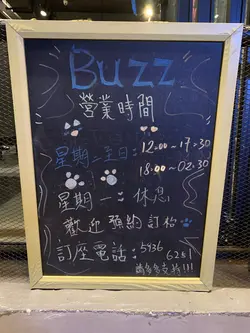 Buzz
營業時間
星期二至日: 12:00~17:30
18:00~02:30
星期一: 休息
歡迎預約訂枱
訂座電話: 5436
6281
請多多支持!!!